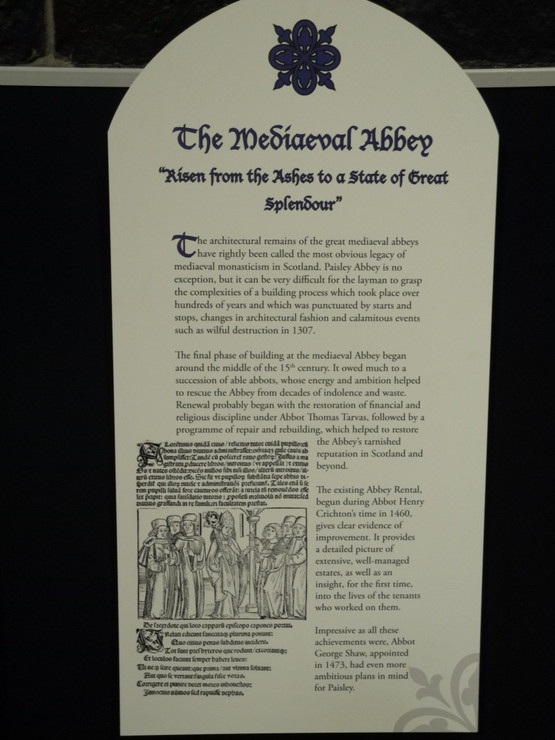 The Mediaeval Abbey
"Risen from the Ashes to a State of Great
Splendour"
The architectural remains of the great mediaeval abbeys
have rightly been called the most obvious legacy of
mediaeval monasticism in Scotland. Paisley Abbey is no
exception, but it can be very difficult for the layman to grasp
the complexities of a building process which took place over
hundreds of years and which was punctuated by starts and
stops, changes in architectural fashion and calamitous events
such as wilful destruction in 1307.
The final phase of building at the mediaeval Abbey began
around the middle of the 15th century. It owed much to a
succession of able abbots, whose energy and ambition helped
to rescue the Abbey from decades of indolence and waste.
Renewal probably began with the restoration of financial and
religious discipline under Abbot Thomas Tarvas, followed by a
programme of repair and rebuilding, which helped to restore
the Abbey's tarnished
reputation in Scotland and
beyond.
The existing Abbey Rental,
begun during Abbot Henry
Crichton's time in 1460,
gives clear evidence of
improvement. It provides
a detailed picture of
extensive, well-managed
estates, as well as an
insight, for the first time,
into the lives of the tenants
who worked on them.
Impressive as all these
achievements were, Abbot
George Shaw, appointed
in 1473, had even more
ambitious plans in mind
for Paisley.